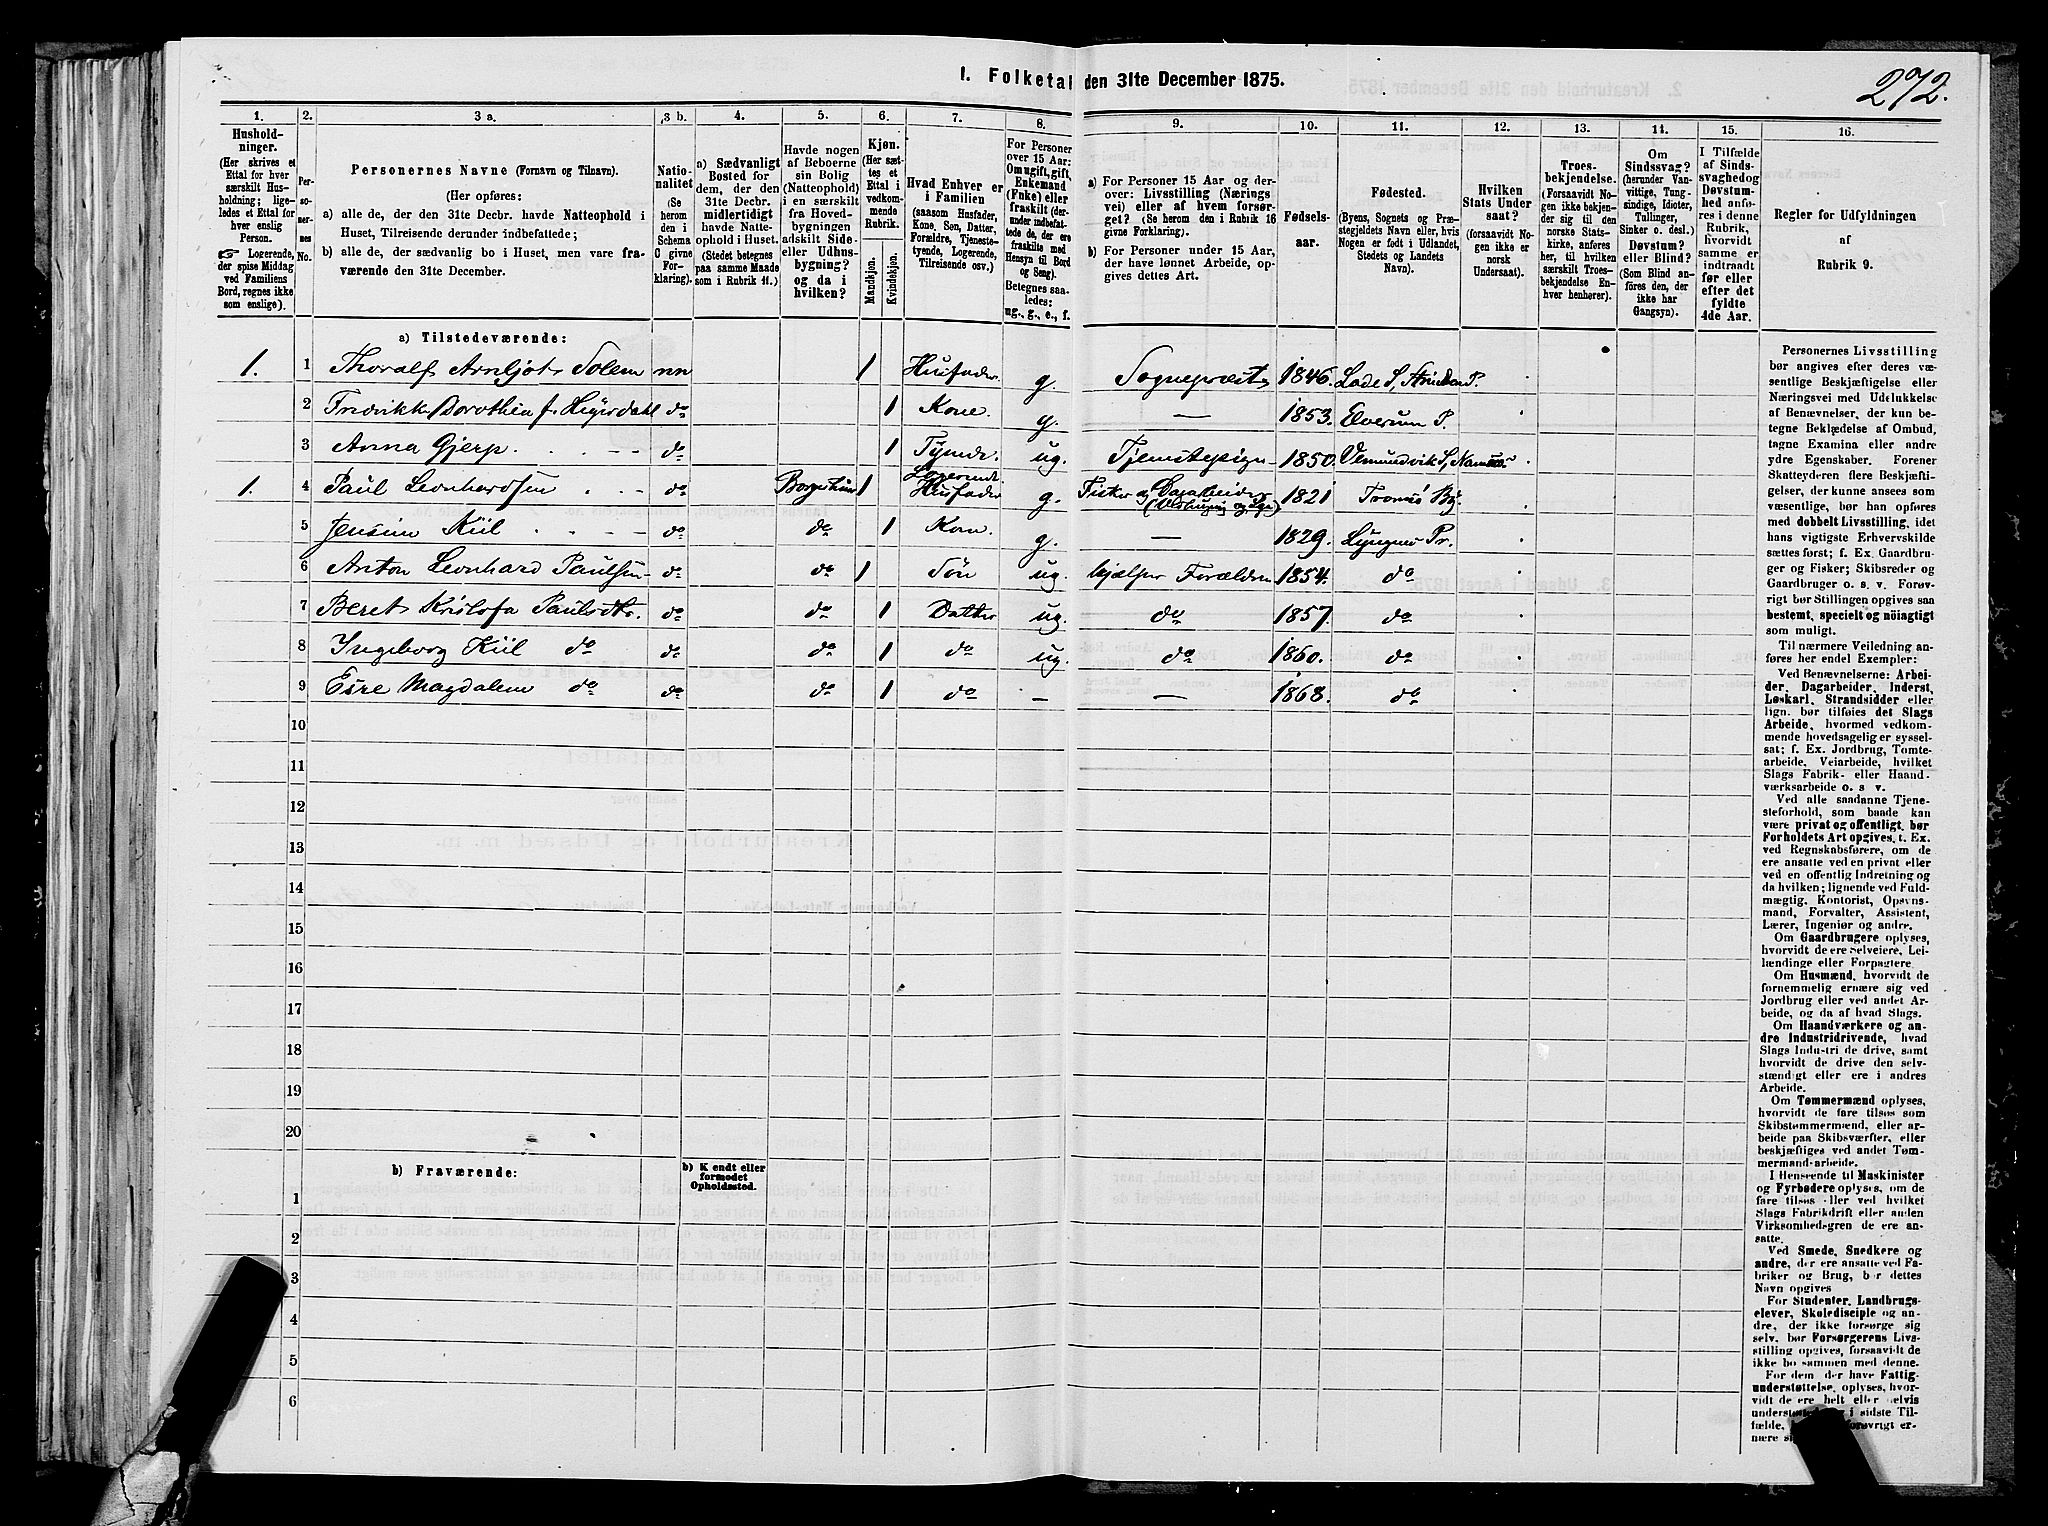 272.
1. Folketal den 31te December 1875.
1. 2. 3 a. 3 b. 4. 5. 6. 7. 8. 9. 10. 11. 12. 13. 14. 15. 16.
Hushold-
ninger.
(Her skrives et
Ettal for hver
særskilt Hus-
holdning; lige-
ledes et Ettal for
hver enslig
Person.
☞ Logerende,
der spise Middag
ved Familiens
Bord, regnes ikke
som enslige).
Per-
so-
ner-
nes
No.
Personernes Navne (Fornavn og Tilnavn).
(Her opføres:
a) alle de, der den 31te Decbr. havde Natteophold i
Huset, Tilreisende derunder indbefattede;
b) alle de, der sædvanlig bo i Huset, men vare fra-
værende den 31te December.
Natio-
nalitet
(Se
herom
den i
Schema
C givne
For-
klaring).
a) Sædvanligt
Bosted for
dem, der den
31te Decbr.
midlertidigt
havde Natte-
ophold i Huset.
(Stedet betegnes
paa samme Maade
som i Rubrik 11.)
Havde nogen
af Beboerne
sin Bolig
(Natteophold)
i en særskilt
fra Hoved-
bygningen
adskilt Side-
eller Udhus-
bygning?
og da i
hvilken?
Kjøn.
(Her sæt-
tes et
Ettal i
vedkom-
mende
Rubrik.
Mandkjøn.
Kvindekjøn.
Hvad Enhver er
i Familien
(saasom Husfader,
Kone, Søn, Datter,
Forældre, Tjeneste-
tyende, Logerende,
Tilreisende osv.)
For Personer
over 15 Aar:
Om ugift, gift,
Enkemand
(Enke) eller
fraskilt (der-
under indbefat-
tede de, der ere
fraskilte med
Hensyn til Bord
og Seng).
Betegnes saa-
ledes:
ug., g., e., f.
a) For Personer 15 Aar og der-
over: Livsstilling (Nærings-
vei) eller af hvem forsør-
get? (Se herom den i Rubrik 16
givne Forklaring).
b) For Personer under 15 Aar,
der have lønnet Arbeide, op-
gives dettes Art.
Fødsels-
aar.
Fødested.
(Byens, Sognets og Præ-
stegjeldets Navn eller, hvis
Nogen er født i Udlandet,
Stedets og Landets
Navn).
Hvilken
Stats Under
saat?
(forsaavidt No-
gen ikke er
norsk
Undersaat).
Troes-
bekjendelse.
(Forsaavidt No-
gen ikke bekjen-
der sig til den
norske Stats-
kirke, anføres
her, til hvilken
særskilt Troes-
bekjendelse En-
hver henhører).
Om
Sindssvag?
(herunder Van-
vittige, Tung-
sindige, Idioter,
Tullinger,
Sinker o. desl.)
Døvstum?
eller Blind?
(Som Blind an-
føres den, der
ikke har
Gangsyn).
I Tilfælde
af Sinds-
svaghed og
Døvstum-
hed anfø-
res i denne
Rubrik,
hvorvidt
samme er
indtraadt
før eller
efter det
fyldte
4de Aar.
Regler for Udfyldningen
af
Rubrik 9.
a) Tilstedeværende:
1. 1 Thoralf Arnljot Solem nn 1 Husfader g. Sognepræst 1846. Lade S, Strinden P.
2 Fredrikke Dorothea f. Heyerdahl do 1 Kone. g. — 1853. Elverum P.
3 Anna Gjerp do 1 Tjende. ug. Tjenestepige 1850. Vemundvik S, Namsos
1. 4 Paul Leonhardsen do Borgestuen 1 Logerende Husfader g. Fisker og Dagarbeider 1821 Tromsø By.
5 Jensine Kiil do do 1 Kone. g. — 1829. Lyngens Pr.
6 Anton Leonhard Paulsen do do 1 Søn ug. hjælper Forældrene 1854. do
7 Beret Kristofa Paulsdtr. do do 1 Datter ug. do 1857. do
8 Ingeborg Kiil do do do 1 do ug. do 1860. do
9 Magdalene do do do 1 do — — 1868. do
10
11
12
13
14
15
16
17
18
19
20
b) Fraværende:
b) Kjendt eller
formodet
Opholdssted.
1
2
3
4
5
6
Personernes Livsstilling
bør angives efter deres væ-
sentlige Beskjæftigelse eller
Næringsvei med Udelukkelse
af Benævnelser, der kun be-
tegne Beklædelse af Ombud,
tagne Examina eller andre
ydre Egenskaber. Forener
Skatteyderen flere Beskjæfti-
gelser, der kunne ansees som
væsentlige, bør han opføres
med dobbelt Livsstilling, idet
hans vigtigste Erhvervskilde
sættes først; f. Ex. Gaardbru-
ger og Fisker; Skibsreder og
Gaardbruger o. s. v. Forøv-
rigt bør Stillingen opgives saa
bestemt, specielt og nøiagtigt
som muligt.
Til nærmere Veiledning an-
føres her endel Exempler:
Ved Benævnelserne: Arbei-
der, Dagarbeider, Inderst,
Løskarl, Strandsidder eller
lign. bør tilføies det Slags
Arbeide, hvormed vedkom-
mende hovedsagelig er syssel-
sat; f. Ex. Jordbrug, Tomte-
arbeide, Veiarbeide, hvilket
Slags Fabrik- eller Haand-
værksarbeide o. s. v.
Ved alle saadanne Tjene-
steforhold, som baade kan
være privat og offentligt, bør
Forholdets Art opgives, t. Ex.
ved Regnskabsførere, om de
ere ansatte ved en privat eller
ved en offentlig Indretning og
da hvilken; lignende ved Fuld-
mægtig, Kontorist, Opsyns-
mand, Forvalter, Assistent,
Lærer, Ingeniør og andre.
Om Gaardbrugere oplyses,
hvorvidt de ere Selveiere, Lei-
lændinge eller Forpagtere.
Om Husmænd, hvorvidt de
fornemmelig ernære sig ved
Jordbrug eller ved andet Ar-
beide, og da af hvad Slags.
Om Haandværkere og an-
dre Industridrivende, hvad
Slags Industri de drive, samt
hvorvidt de drive den selv-
stændigt eller ere i andres
Arbeide.
Om Tømmermænd oplyses,
hvorvidt de fare tilsøs som
Skibstømmermænd, eller ar-
beide paa Skibsværfter, eller
beskjæftiges ved andet Tøm-
mermand-arbeide.
I Henseende til Maskinister
og Fyrbødere oplyses, om de
fare tilsøs eller ved hvilket
Slags Fabrikdrift eller anden
Virksomhedsgren de ere an-
satte.
Ved Smede, Snedkere og
andre, der ere ansatte ved Fa-
briker og Brug, bør dettes
Navn opgives
For Studenter, Landbrugs-
elever, Skoledisciple og an-
dre, der ikke forsørge sig
selv, bør Forsørgerens Livs-
stilling opgives, forsaavidt de
ikke bo sammen med denne.
For dem, der have Fattig-
understøttelse, oplyses, hvor-
vidt de ere helt eller delvis
i sidste Til-
fælde,